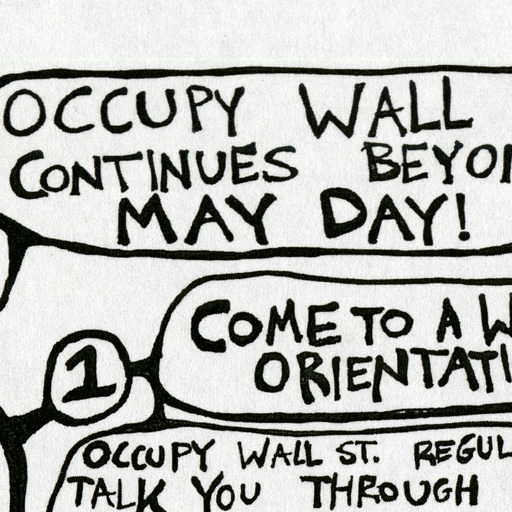 OCCUPY WALL
CONTINUES BEYO
MAY DAY!
COME TO A W
1
ORIENTATI
OCCUPY WALL ST. REGUL
TALK YOU THROUGH